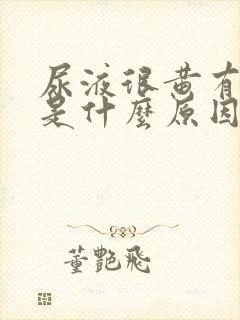 尿液很黄有
是什麼原因
董艷飛